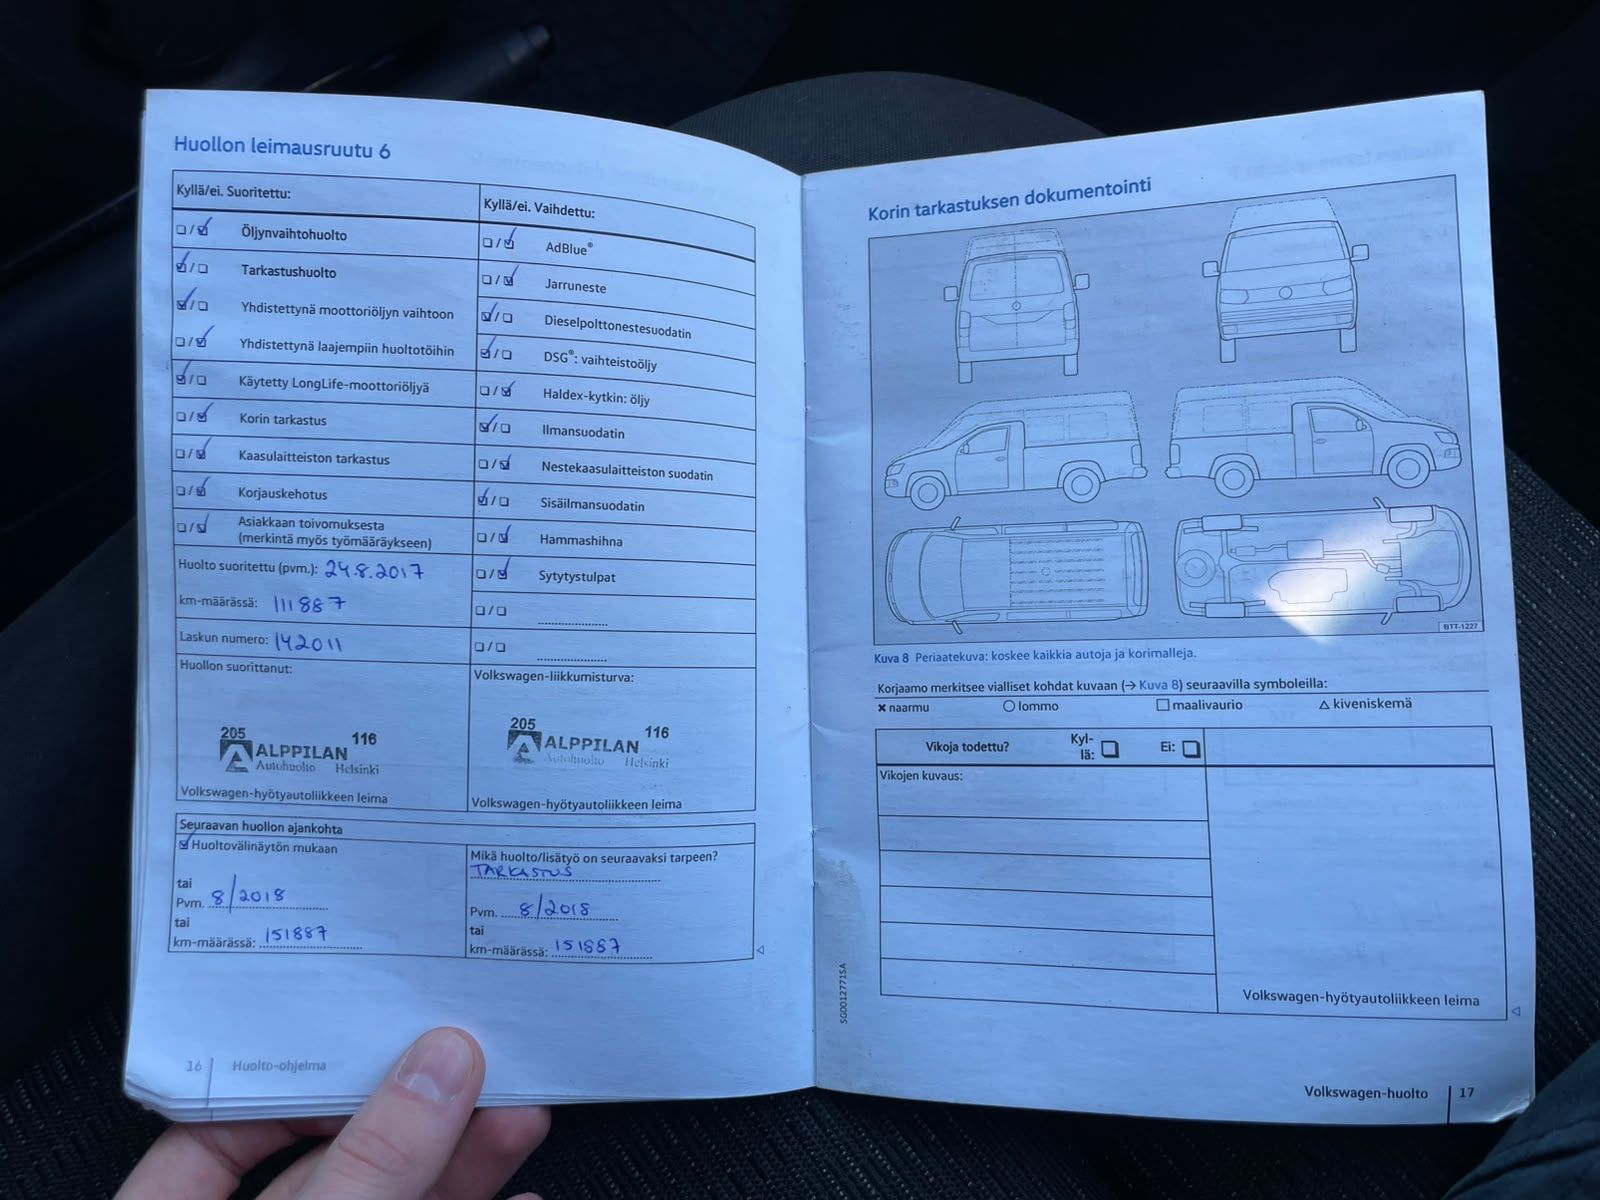 Huollon leimausruutu 6
Kyllä/ei. Suoritettu:
Öljynvaihtohuolto
Tarkastushuolto
Yhdistettynä moottoriöljyn vaihtoon
Yhdistettynä laajempiin huoltotöihin
Käytetty LongLife-moottoriöljyä
Korin tarkastus
Kaasulaitteiston tarkastus
Korjauskehotus
Asiakkaan toivomuksesta
(merkintä myös työmääräykseen)
Huolto suoritettu (pvm.): 24.8.2017
km-määrässä: 111887
Laskun numero: 142011
Huollon suorittanut:
205 116
ALPPILAN
Autohuolto Helsinki
Volkswagen-hyötyautoliikkeen leima
Kyllä/ei. Vaihdettu:
AdBlue®
Jarruneste
Dieselpolttonestesuodatin
DSG®: vaihteistoöljy
Haldex-kytkin: öljy
Ilmansuodatin
Nestekaasulaitteiston suodatin
Sisäilmansuodatin
Hammashihna
Sytytystulpat
Volkswagen-liikkumisturva:
205 116
ALPPILAN
Autohuolto Helsinki
Volkswagen-hyötyautoliikkeen leima
Seuraavan huollon ajankohta
Huoltovälinäytön mukaan
tai
Pvm. 8/2018
tai
km-määrässä: 151887
Mikä huolto/lisätyö on seuraavaksi tarpeen?
TARKASTUS
Pvm. 8/2018
tai
km-määrässä: 151887
16 Huolto-ohjelma
Korin tarkastuksen dokumentointi
BTT-1227
Kuva 8 Periaatekuva: koskee kaikkia autoja ja korimalleja.
Korjaamo merkitsee vialliset kohdat kuvaan (→ Kuva 8) seuraavilla symboleilla:
✖ naarmu ○ lommo □ maalivaurio △ kiveniskemä
Vikoja todettu? Kyl-
lä: Ei:
Vikojen kuvaus:
Volkswagen-hyötyautoliikkeen leima
SG0012771SA
Volkswagen-huolto 17